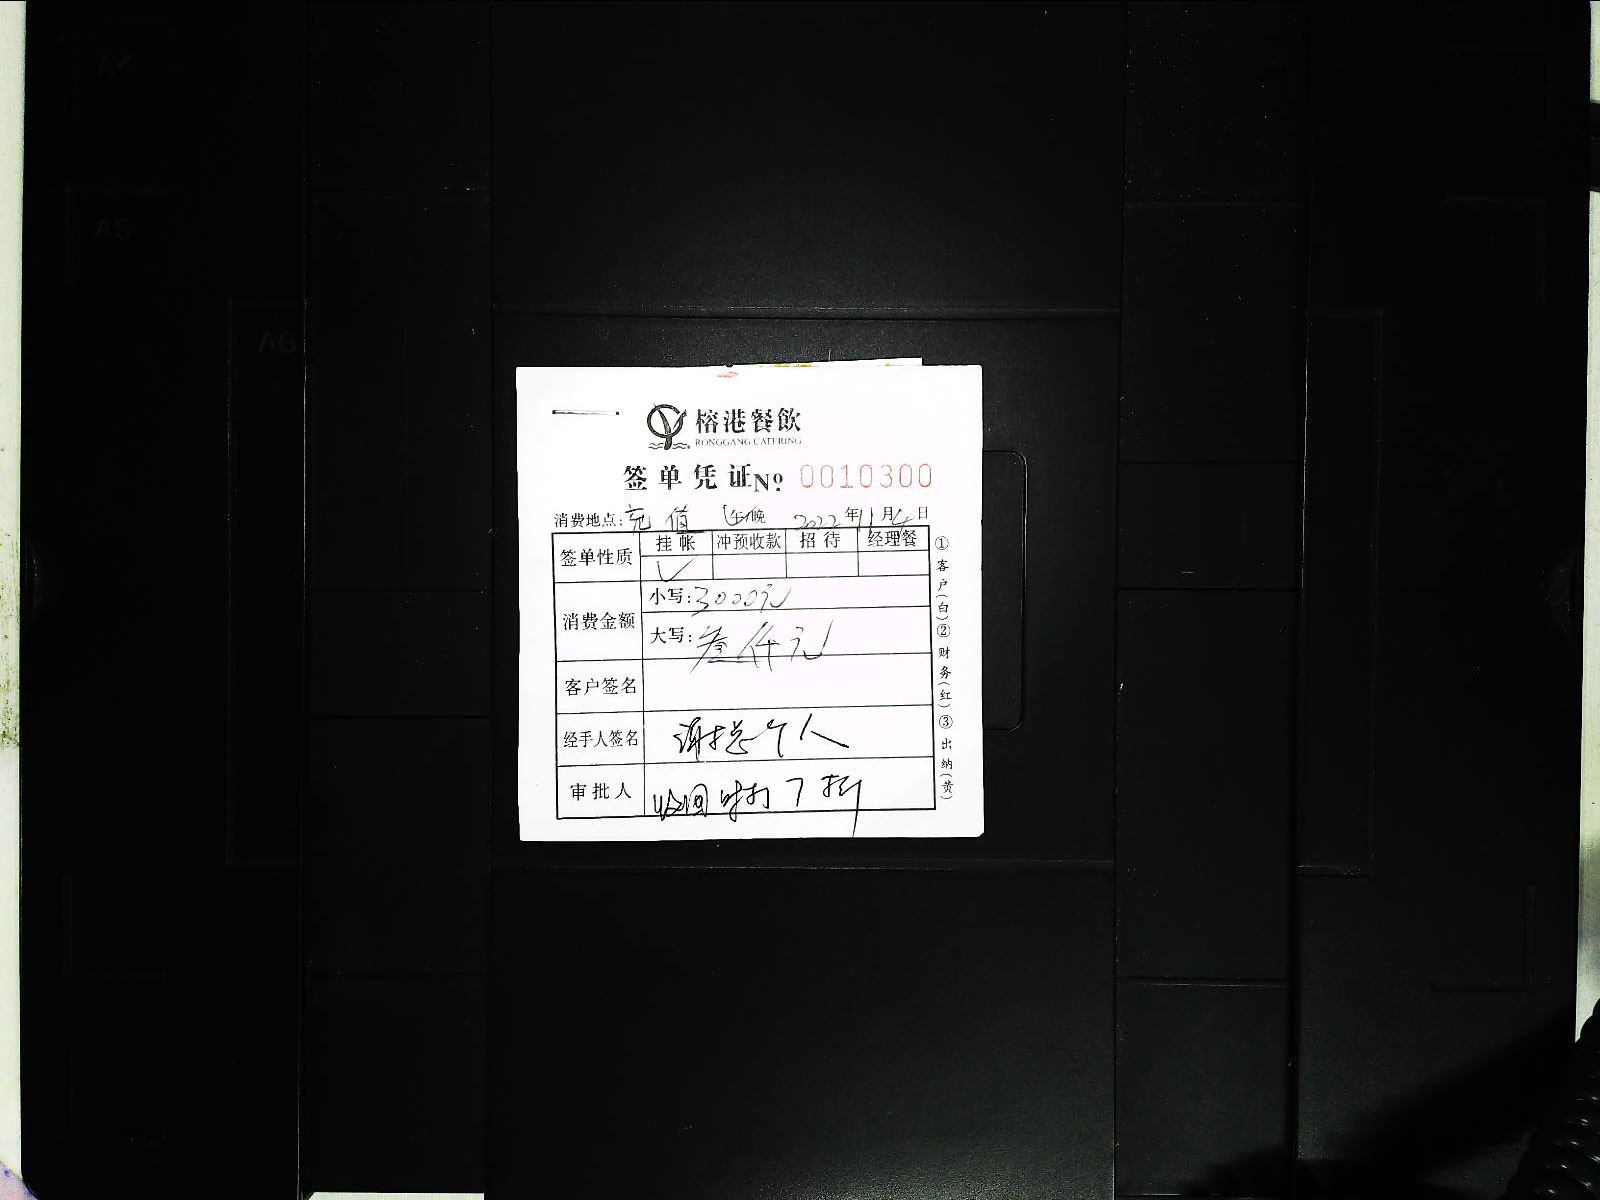 A4
A5
A6
榕港餐飲
RONGGANG CATERING
签单凭证 № 0010300
消费地点: 充值 午/晚 2022年11月4日
签单性质 挂帐 冲预收款 招待 经理餐
✓
消费金额 小写: 3000元
大写: 叁仟元
客户签名
经手人签名 谢总个人
审批人 收回时打7折
①客户(白)②财务(红)③出纳(黄)